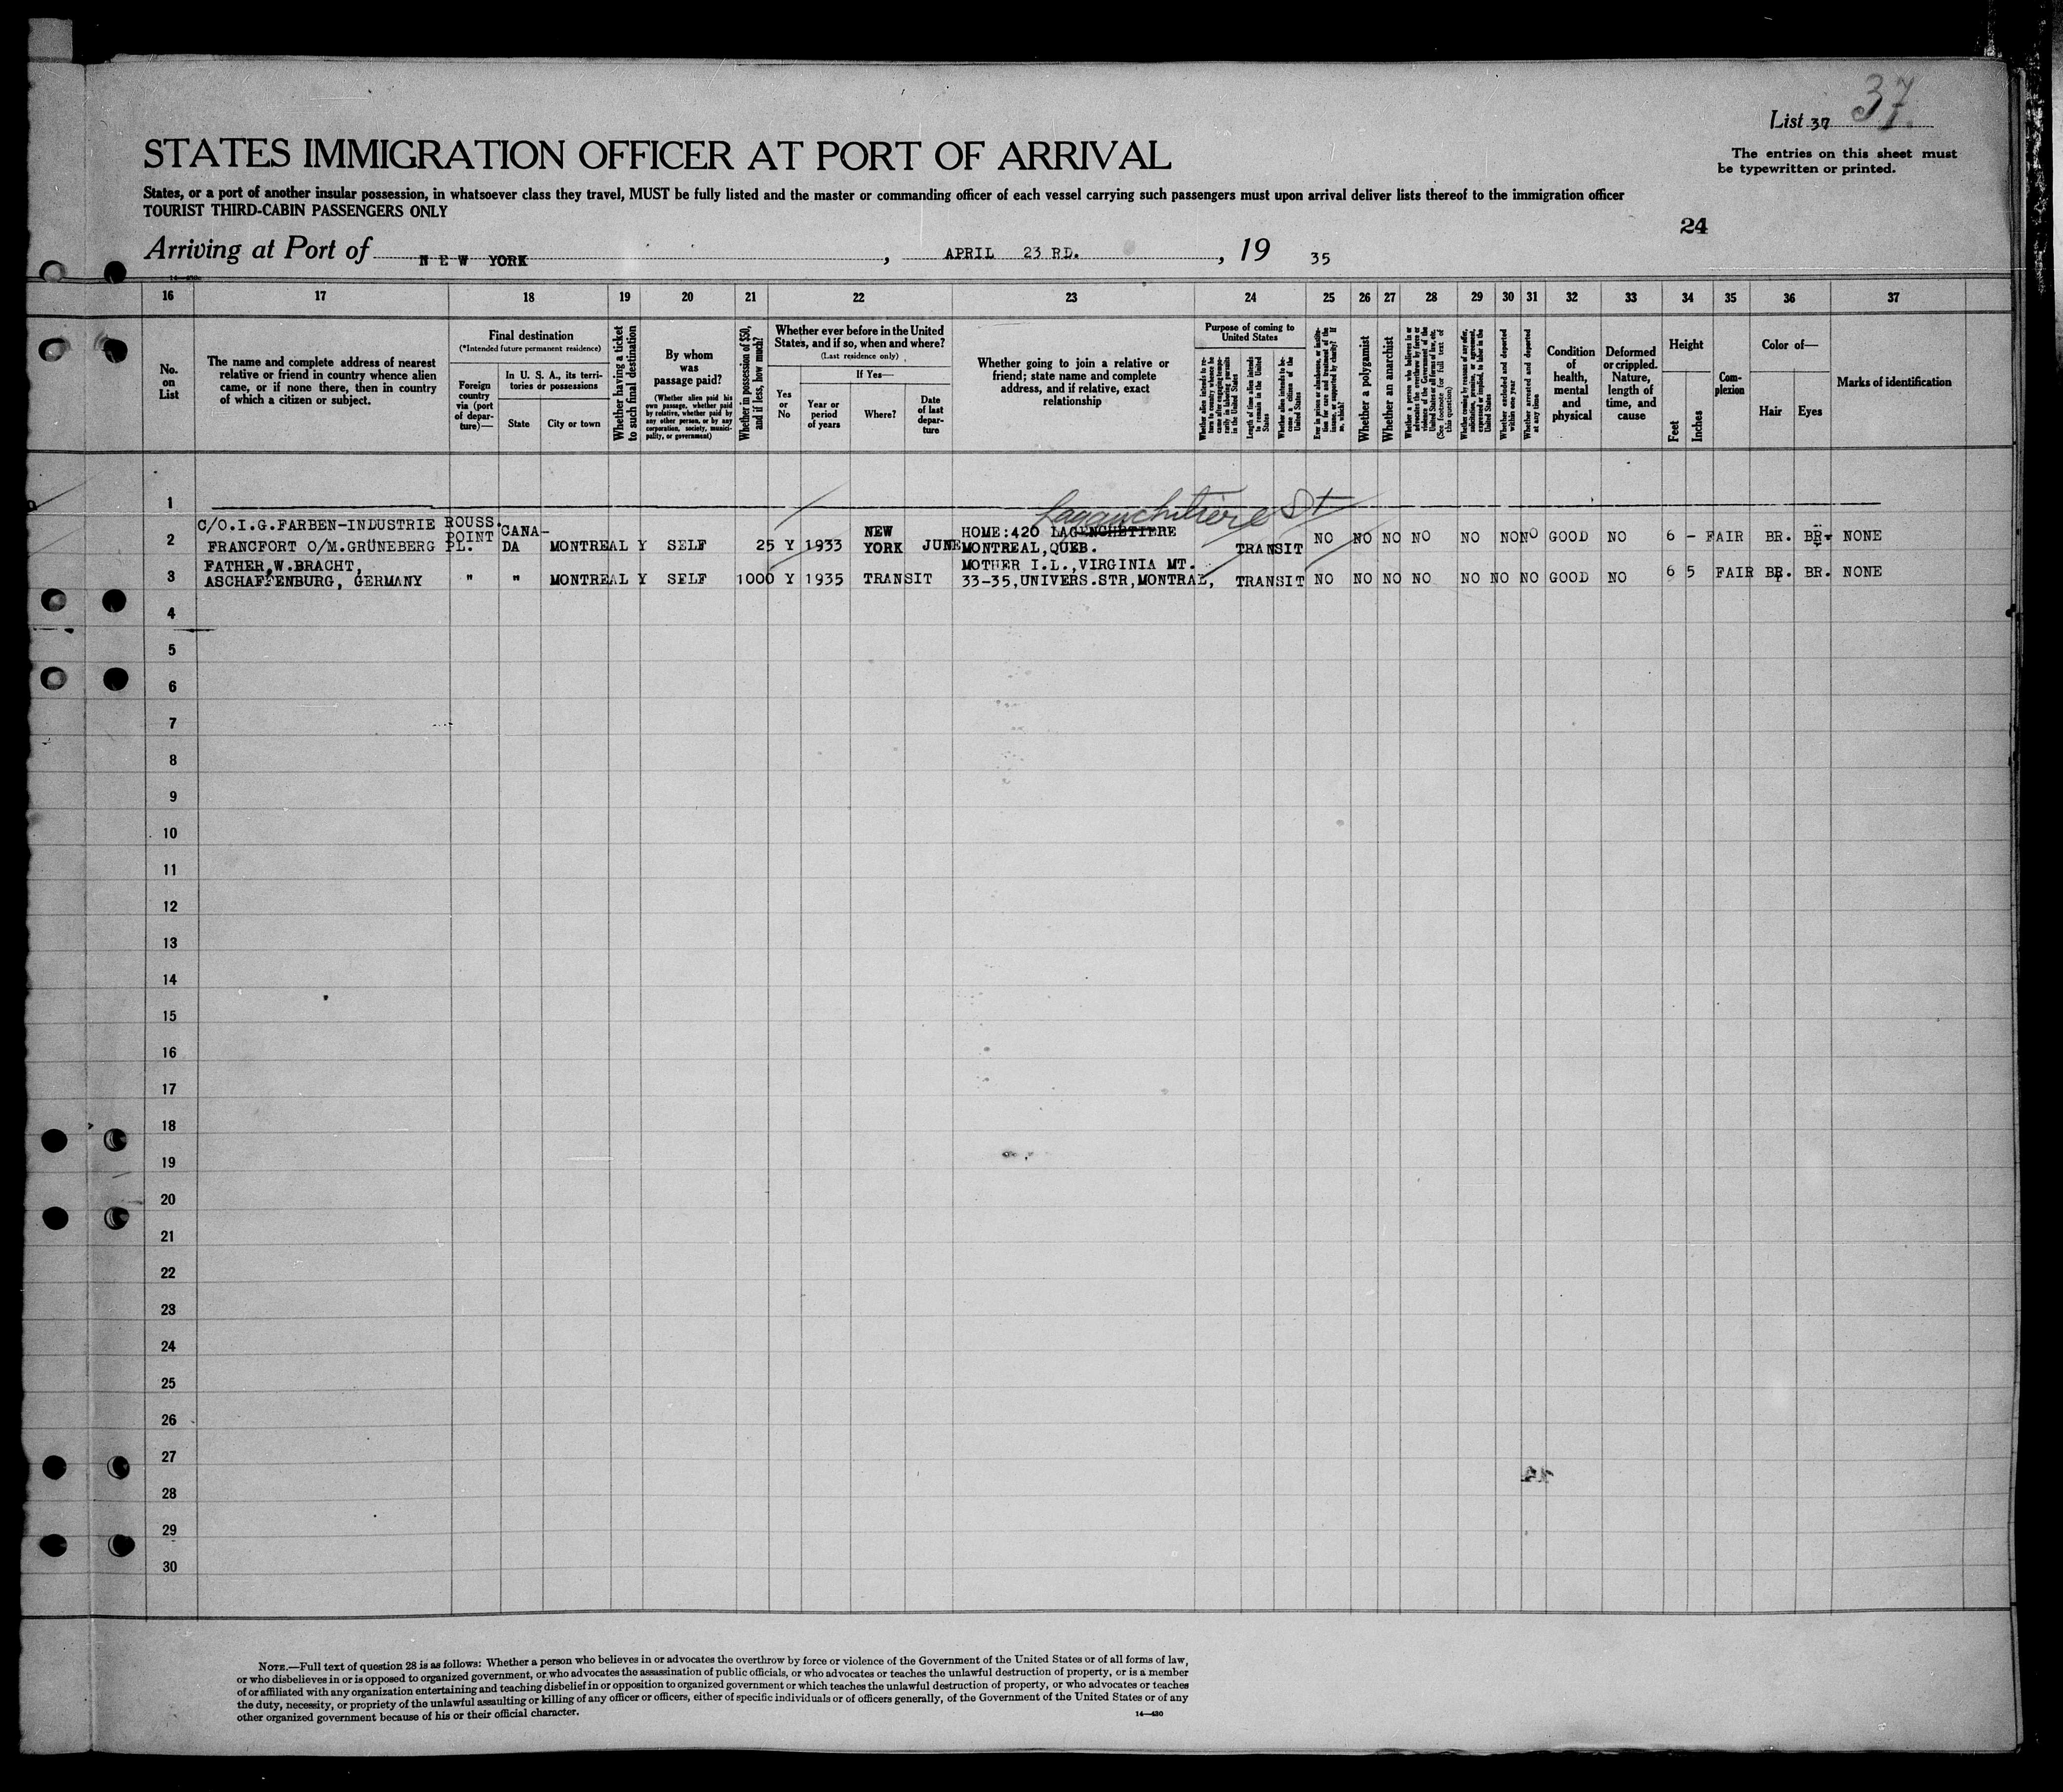 37.
List 37
STATES IMMIGRATION OFFICER AT PORT OF ARRIVAL
The entries on this sheet must
be typewritten or printed.
States, or a port of another insular possession, in whatsoever class they travel, MUST be fully listed and the master or commanding officer of each vessel carrying such passengers must upon arrival deliver lists thereof to the immigration officer
TOURIST THIRD-CABIN PASSENGERS ONLY
24
Arriving at Port of NEW YORK, APRIL 23 RD., 19 35
16 17 18 19 20 21 22 23 24 25 26 27 28 29 30 31 32 33 34 35 36 37
No.
on
List
The name and complete address of nearest
relative or friend in country whence alien
came, or if none there, then in country
of which a citizen or subject.
Final destination
(*Intended future permanent residence)
Foreign
country
via (port
of depar-
ture)—
In U. S. A., its terri-
tories or possessions
State
City or town
Whether having a ticket
to such final destination
By whom
was
passage paid?
(Whether alien paid his
own passage, whether paid
by relative, whether paid by
any other person, or by any
corporation, society, munici-
pality, or government)
Whether in possession of $50,
and if less, how much?
Whether ever before in the United
States, and if so, when and where?
(Last residence only)
Yes
or
No
If Yes—
Year or
period
of years
Where?
Date
of last
depar-
ture
Whether going to join a relative or
friend; state name and complete
address, and if relative, exact
relationship
Purpose of coming to
United States
Whether alien intends to re-
turn to country whence he
came after engaging tempo-
rarily in laboring pursuits
in the United States
Length of time alien intends
to remain in the United
States
Whether alien intends to be-
come a citizen of the
United States
Ever in prison or almshouse, or institu-
tion for care and treatment of the
insane, or supported by charity? If
so, which?
Whether a polygamist
Whether an anarchist
Whether a person who believes in or
advocates the overthrow by force or
violence of the Government of the
United States or all forms of law, etc.
(See footnote for full text of
this question)
Whether coming by reason of any offer,
solicitation, promise, or agreement,
expressed or implied, to labor in the
United States
Whether excluded and deported
within one year
Whether arrested and deported
at any time
Condition
of
health,
mental
and
physical
Deformed
or crippled.
Nature,
length of
time, and
cause
Height
Feet
Inches
Com-
plexion
Color of—
Hair
Eyes
Marks of identification
1
Lagauchitière St
C/O.I.G.FARBEN-INDUSTRIE ROUSS. CANA- NEW HOME:420 LAGENCHETIERE
POINT
2 FRANCFORT O/M.GRÜNEBERG PL. DA MONTREAL Y SELF 25 Y 1933 YORK JUNE MONTREAL,QUEB. TRANSIT NO NO NO NO NO NO NO GOOD NO 6 - FAIR BR. BR. NONE
FATHER,W.BRACHT, MOTHER I.L.,VIRGINIA MT.
3 ASCHAFFENBURG, GERMANY " " MONTREAL Y SELF 1000 Y 1935 TRANSIT 33-35,UNIVERS.STR,MONTRAL, TRANSIT NO NO NO NO NO NO NO GOOD NO 6 5 FAIR BR. BR. NONE
4
5
6
7
8
9
10
11
12
13
14
15
16
17
18
19
20
21
22
23
24
25
26
27
28
29
30
NOTE.—Full text of question 28 is as follows: Whether a person who believes in or advocates the overthrow by force or violence of the Government of the United States or of all forms of law,
or who disbelieves in or is opposed to organized government, or who advocates the assassination of public officials, or who advocates or teaches the unlawful destruction of property, or is a member
of or affiliated with any organization entertaining and teaching disbelief in or opposition to organized government or which teaches the unlawful destruction of property, or who advocates or teaches
the duty, necessity, or propriety of the unlawful assaulting or killing of any officer or officers, either of specific individuals or of officers generally, of the Government of the United States or of any
other organized government because of his or their official character.
14—430